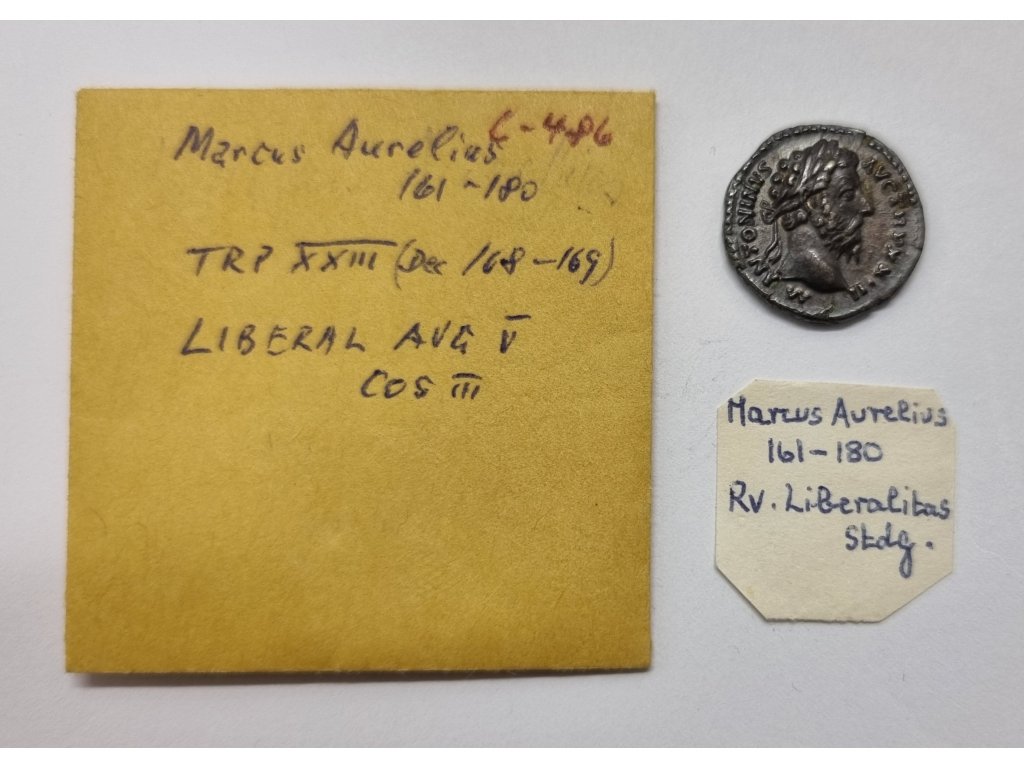 C-486
Marcus Aurelius
161-180
TRP XXIII (Dec 168-169)
LIBERAL AVG V
COS III
M ANTONINVS AVG TR P XXIII
Marcus Aurelius
161-180
Rv. Liberalitas
Stdg.